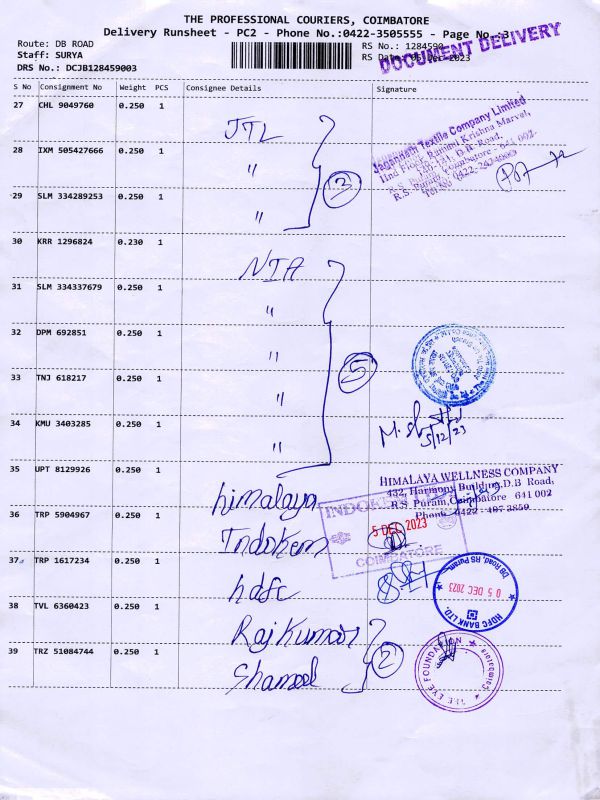 THE PROFESSIONAL COURIERS, COIMBATORE
Delivery Runsheet - PC2 - Phone No.:0422-3505555 - Page No.:3
Route: DB ROAD
RS No.: 1284590
Staff: SURYA
RS Date: 05-Dec-2023
DOCUMENT DELIVERY
DRS No.: DCJB128459003
S No Consignment No Weight PCS Consignee Details Signature
27 CHL 9049760 0.250 1
JTL
Jagannath Textile Company Limited
IInd Floor, Rukmani Krishna Marvel,
D.B. Road,
R.S. Puram, Coimbatore - 641 002.
28 IXM 505427666 0.250 1
"
3
29 SLM 334289253 0.250 1
"
30 KRR 1296824 0.230 1
NIA
31 SLM 334337679 0.250 1
"
32 DPM 692851 0.250 1
"
5
33 TNJ 618217 0.250 1
"
34 KMU 3403285 0.250 1
"
5/12/23
35 UPT 8129926 0.250 1
himalaya
HIMALAYA WELLNESS COMPANY
432, Harmony Building, D.B Road,
R.S Puram, Coimbatore 641 002
Phone 0422-4973859
36 TRP 5904967 0.250 1
Indokem
5 DEC 2023
COIMBATORE
37 TRP 1617234 0.250 1
hdfc
DB Road, RS Puram
05 DEC 2023
HDFC BANK LTD.
38 TVL 6360423 0.250 1
Rajkumar
2
39 TRZ 51084744 0.250 1
THE EYE FOUNDATION
Coimbatore